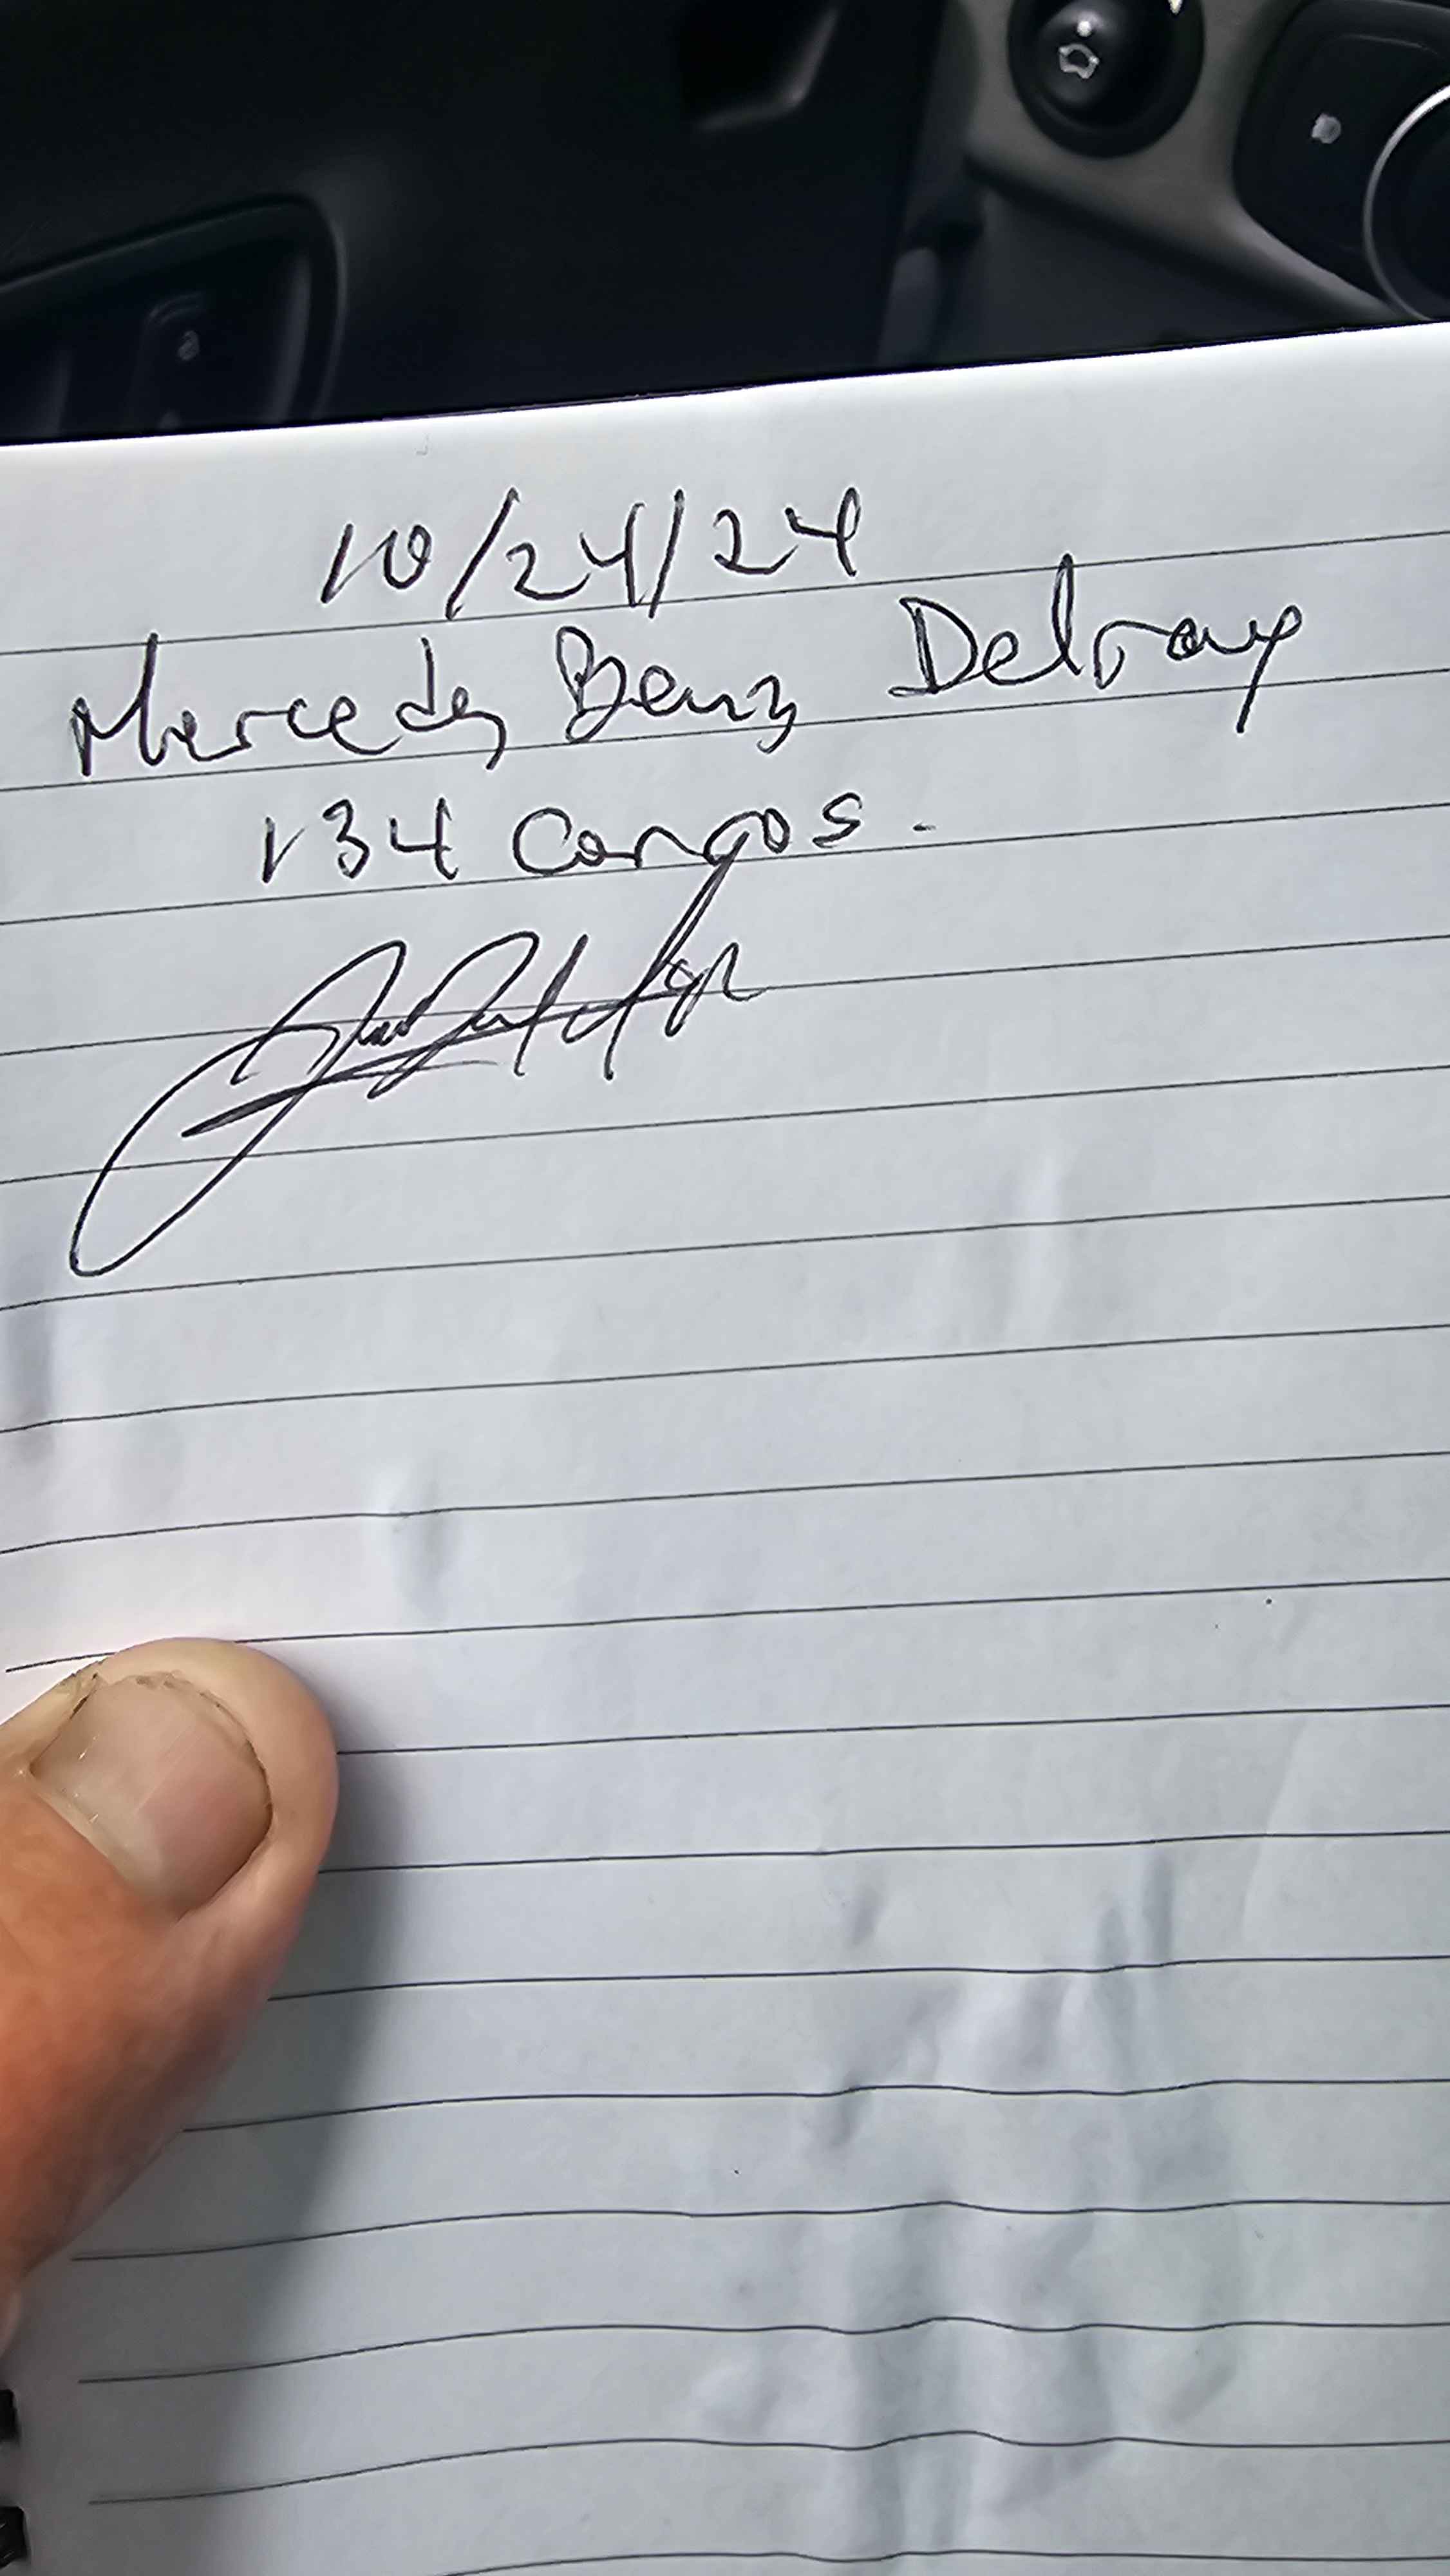 10/24/24
Mercedes Benz Delray
134 Cargos.